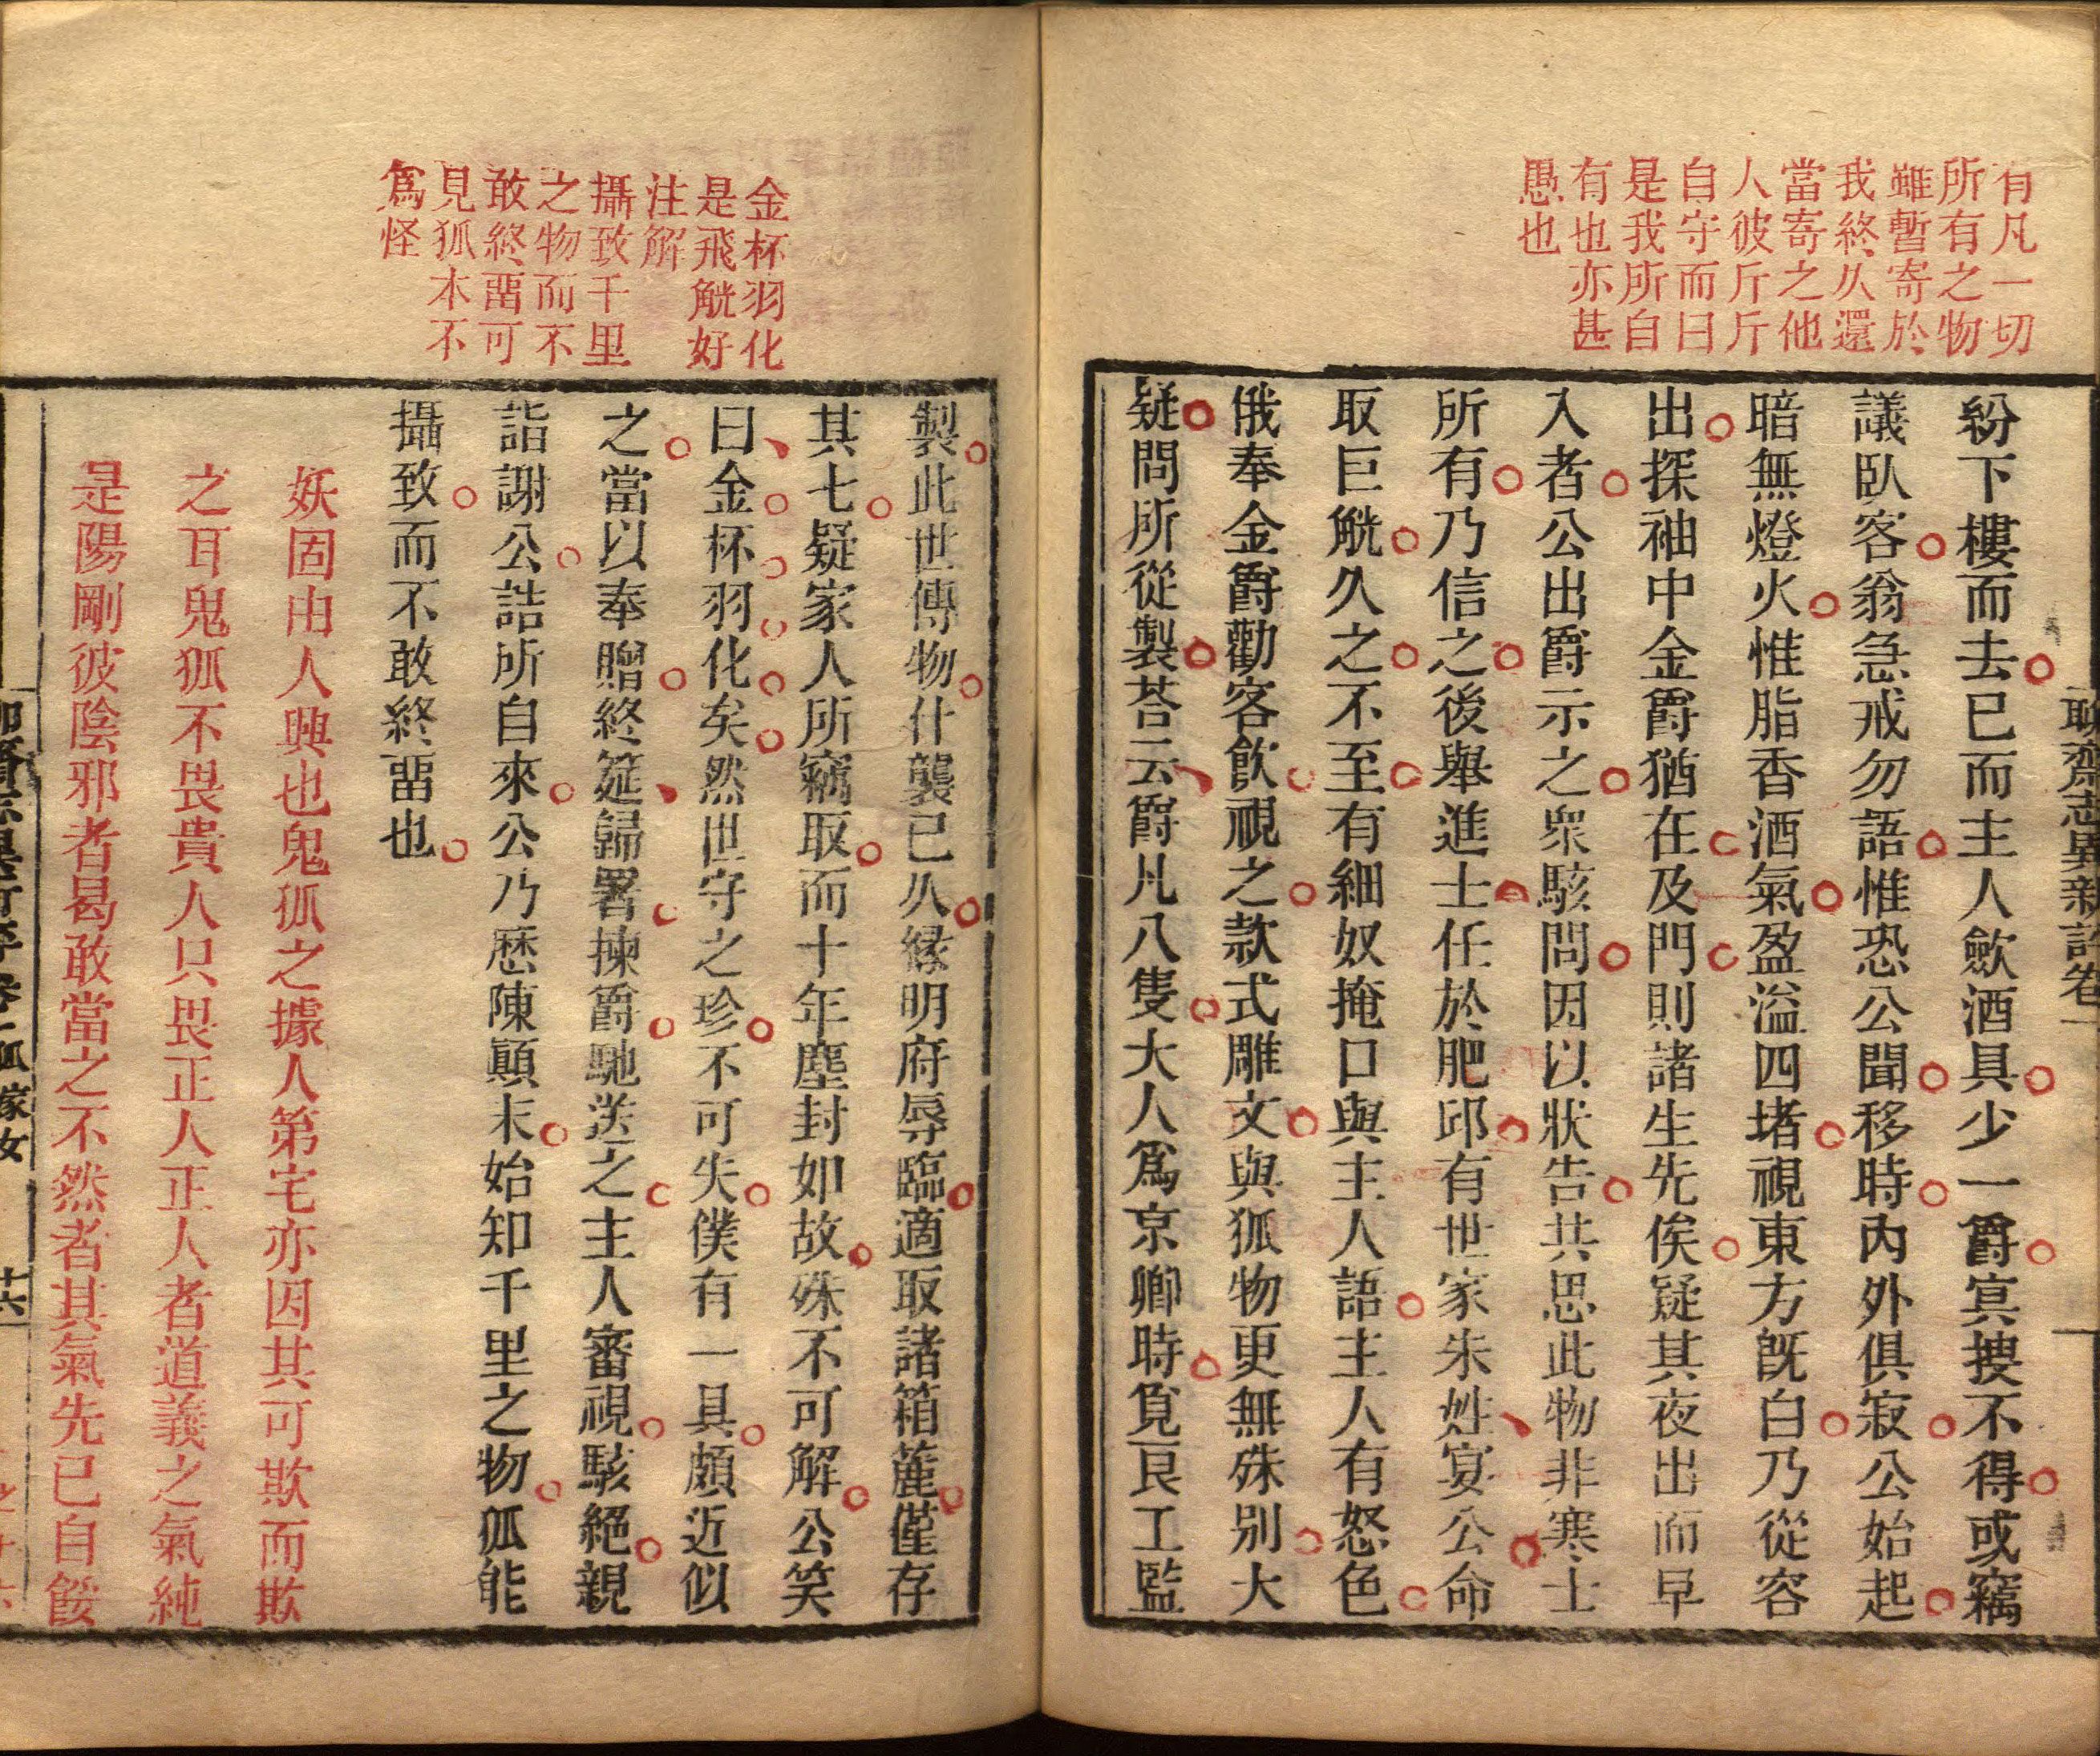 聊齋志異新評卷一
有凡一切
所有之物
雖暫寄於
我終久還
當寄之他
人彼斤斤
自守而曰
是我所自
有也亦甚
愚也
紛下樓而去已而主人歛酒具少一爵冥搜不得或竊
議臥客翁急戒勿語惟恐公聞移時內外俱寂公始起
暗無燈火惟脂香酒氣盈溢四堵視東方旣白乃從容
出探袖中金爵猶在及門則諸生先俟疑其夜出而早
入者公出爵示之眾駭問因以狀告共思此物非寒士
所有乃信之後舉進士任於肥邱有世家朱姓宴公命
取巨觥久之不至有細奴掩口與主人語主人有怒色
俄奉金爵勸客飲視之款式雕文與狐物更無殊別大
疑問所從製荅云爵凡八隻大人爲京卿時覓良工監
金杯羽化
是飛觥好
注解
攝致千里
之物而不
敢終畱可
見狐本不
爲怪
製此世傳物什襲已久緣明府辱臨適取諸箱簏僅存
其七疑家人所竊取而十年塵封如故殊不可解公笑
曰金杯羽化矣然世守之珍不可失僕有一具頗近似
之當以奉贈終筵歸署揀爵馳送之主人審視駭絕親
詣謝公詰所自來公乃歷陳顛末始知千里之物狐能
攝致而不敢終畱也
妖固由人興也鬼狐之據人第宅亦因其可欺而欺
之耳鬼狐不畏貴人只畏正人正人者道義之氣純
是陽剛彼陰邪者曷敢當之不然者其氣先已自餒
卷一狐嫁女 十六